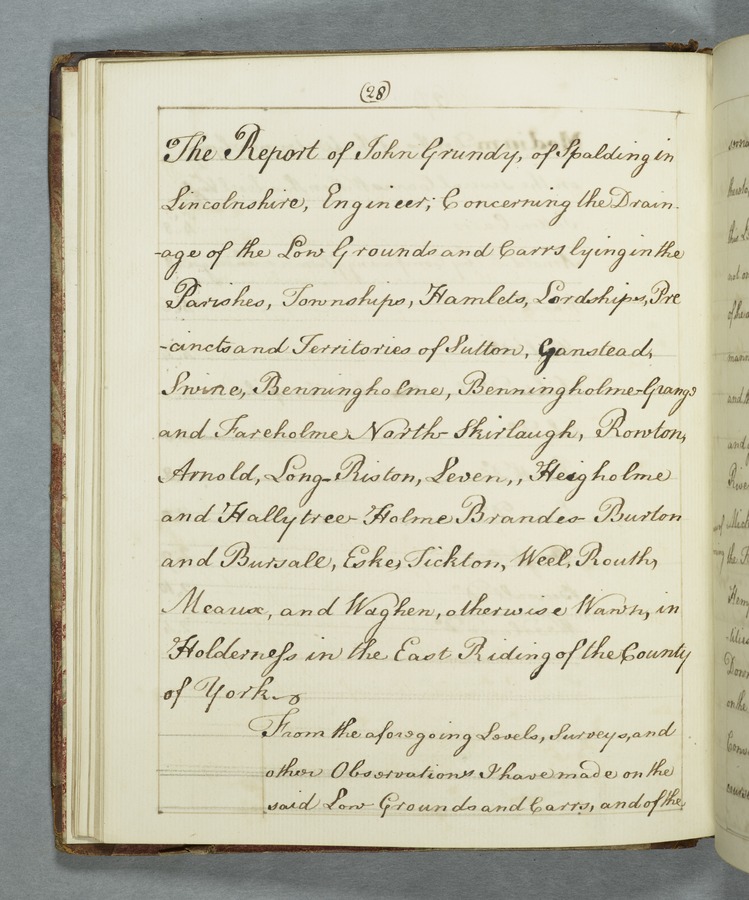 (28)
The Report of John Grundy, of Spalding in
Lincolnshire, Engineer; Concerning the Drain-
-age of the Low Grounds and Carrs lying in the
Parishes, Townships, Hamlets, Lordships, Pre
-cincts and Territories of Sutton, Ganstead,
Swine, Benningholme, Benningholme-Grange
and Fareholme North-Skirlaugh, Rowton,
Arnold, Long-Riston, Leven,, Heigholme
and Hallytree-Holme Brandes-Burton
and Bursall, Eske, Tickton, Weel, Routh,
Meaux, and Waghen, otherwise Wawn, in
Holderness in the East Riding of the County
of York
From the aforegoing Levels, Surveys, and
other Observations I have made on the
said Low Grounds and Carrs, and of the